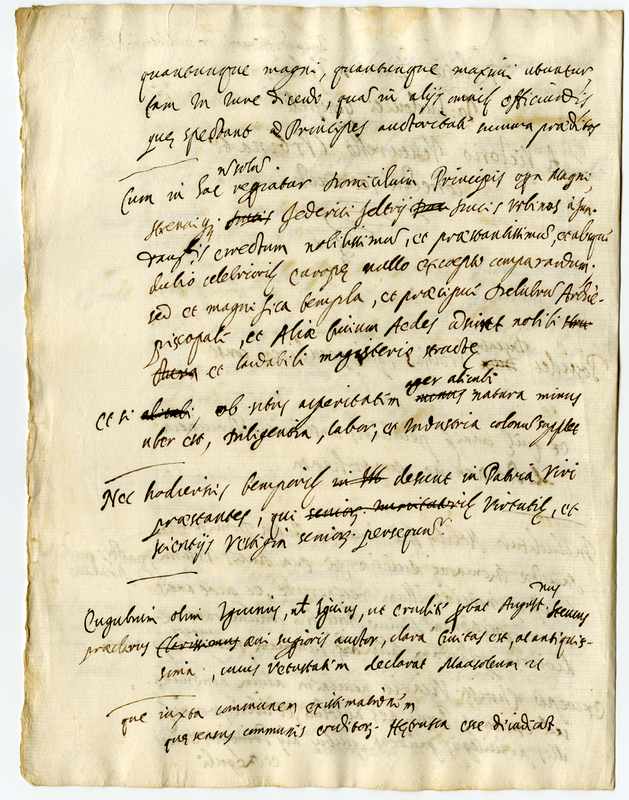 quantunque magni, quantunque maximi utantur
tam in Iure dicendo, quã in alijs omnibus officiendis
quę spectant ad Principes auctoritate summa præditos
n solũ
Cum in hac regiatur Domicilium Principis opa Magni,
strenuiq; Federici Feltrij Ducis Urbinas à fun-
erectum nobilissimũ, et præstantissimũ, et absque
dubio celebrioris Europę nullo excepto comparandum.
sed et magnifica templa, et præcipuè Delubrũ Archie-
piscopale, et Aliæ Civium Aedes nobili
et laudabili magisterio structę
ager alicubi
et si, ob situs asperitatem natura minus
uber est, diligentia, labor, et industria colonũ supplet
Nec hodiernis temporibus desunt in Patria Viri
præstantes, qui Virtutis, et
scientijs vestigia senioꝝ persequunt.
nus
Eugubium olim Iguvius, ut erudite pbat August. Steucus
præclarus ævi superioris auctor, clara Civitas est, at antiquis-
sima, cuius vetustatem declarat Mausoleum
que iuxta communem existimationem
quę sensus communis eruditoꝝ Hętrusca esse diiudicat.